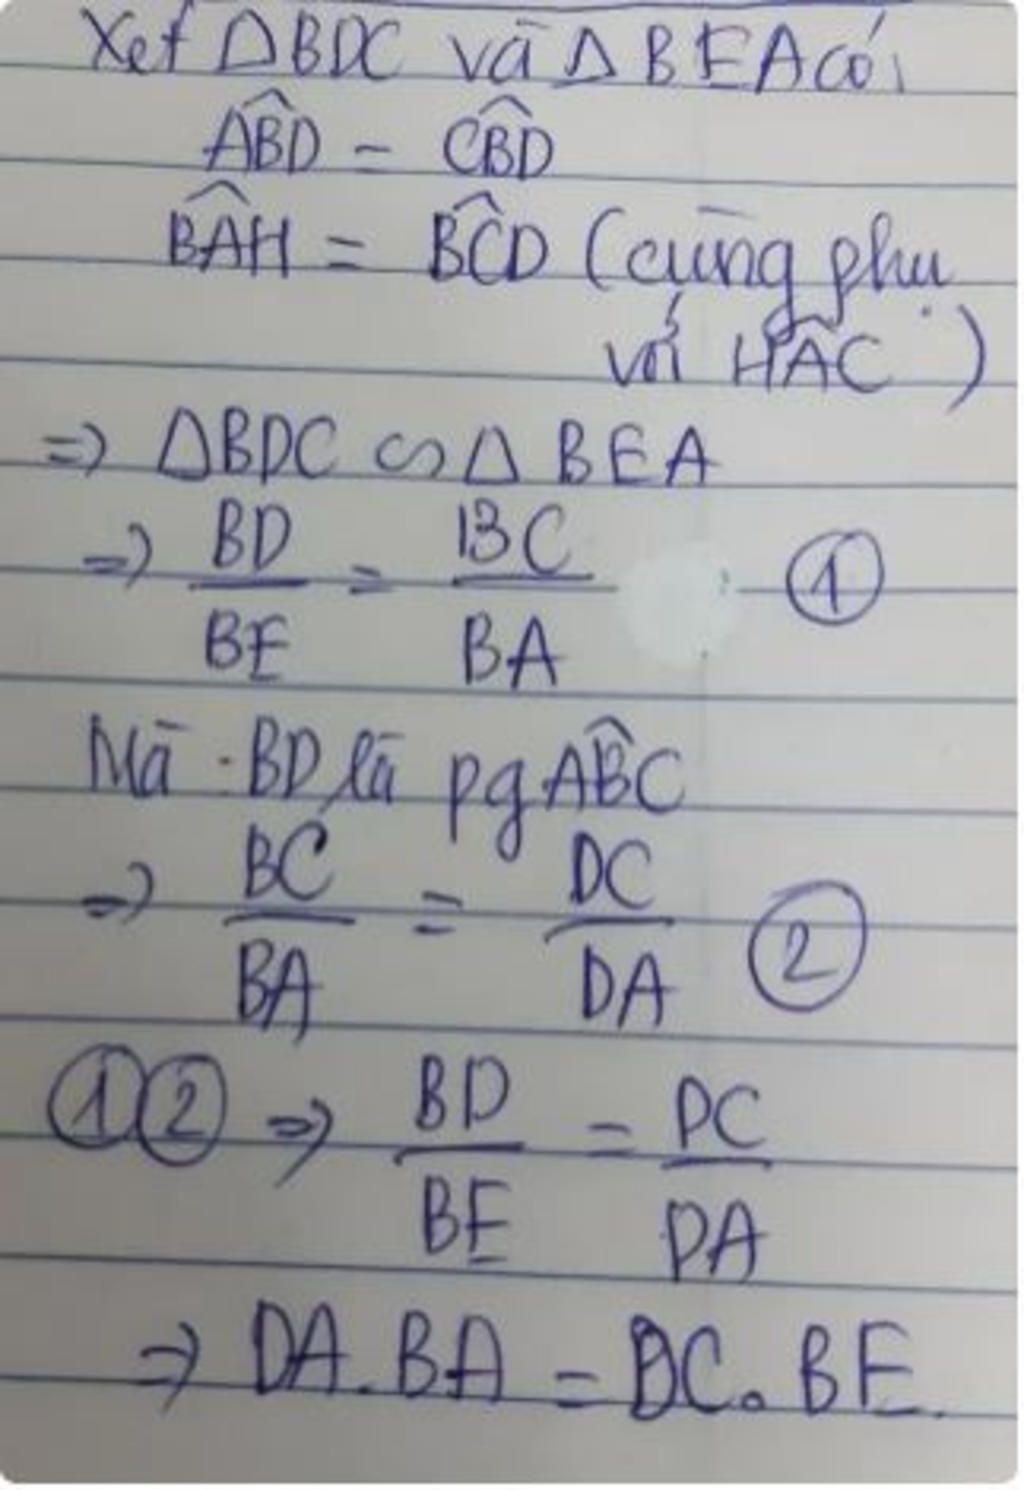 Xét ΔBDC và ΔBEA có,
A\widehat{B}D = C\widehat{B}D
B\widehat{A}H = B\widehat{C}D (cùng phụ
với H\widehat{A}C)
=> ΔBDC ∽ Δ BEA
=> BD/BE = BC/BA ①
Mà BD là pg A\widehat{B}C
=> BC/BA = DC/DA ②
①② => BD/BE = DC/DA
=> DA.BA = DC.BE.